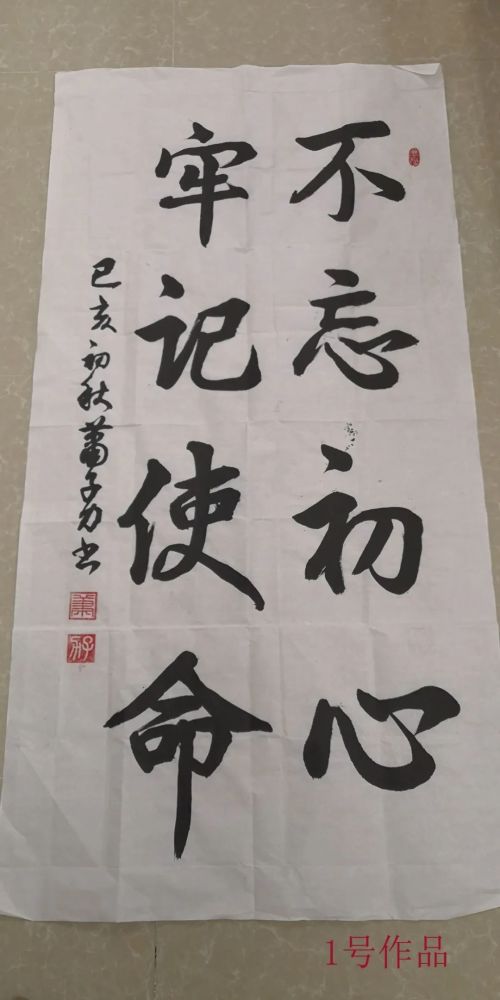 不忘初心
牢记使命
己亥初秋萧子力书
1号作品